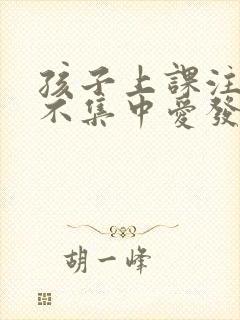 孩子上課注
不集中愛發
胡一峰